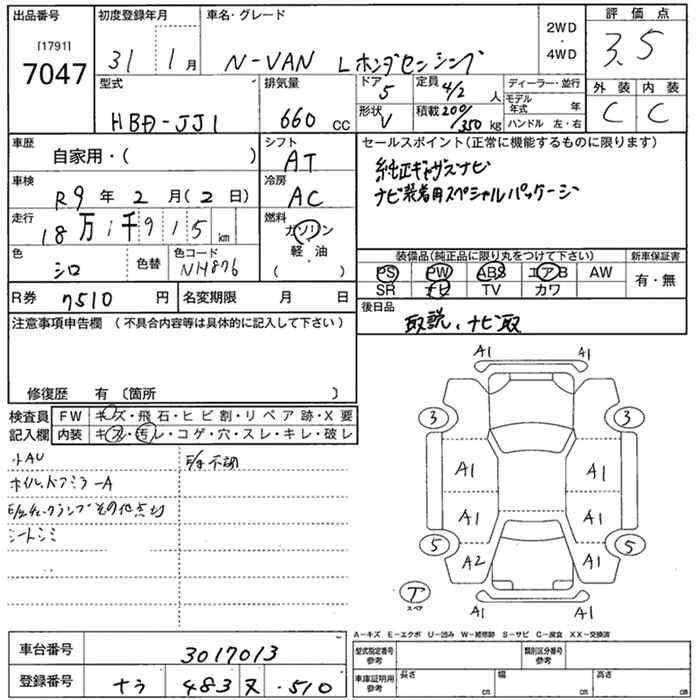 出品番号 初度登録年月 車名・グレード 2WD・4WD 評価点
[1791] 7047 31 1月 N-VAN Lホンダセンシング 3.5
型式 排気量 ドア 5 定員 4/2人 ディーラー・並行 外装 内装
HBD-JJ1 660cc 形状 V 積載 200/350kg モデル年式 年 C C
ハンドル 左・右
車歴 シフト セールスポイント(正常に機能するものに限ります)
自家用・( ) AT 純正ギャザズナビ
車検 冷房 ナビ装着用スペシャルパッケージ
R9年2月(2日) AC
走行 燃料
18万1千915km ガソリン・軽油
色 色替 色コード ( ) 装備品(純正品に限り丸をつけて下さい) 新車保証書
シロ NH876 PS PW ABS エアB AW 有・無
R券 7510円 名変期限 月 日 SR ナビ TV カワ
注意事項申告欄(不具合内容等は具体的に記入して下さい) 後日品
取説、ナビ取
修復歴 有〔箇所 〕
検査員 FW キズ・飛石・ヒビ割・リペア跡・X要
記入欄 内装 キズ・汚レ・コゲ・穴・スレ・キレ・破レ
小AU
ホイル、ドアミラーA
シートシミ
A1 A1
3 3
A1 A1
A1 A1
5 A2 A1 5
T スペア
A1 A1
A-キズ E-エクボ U-凹み W-補修跡 S-サビ C-腐食 XX-交換済
車台番号 3017013 型式指定番号 参考 類別区分番号 参考
登録番号 ナラ 483 ヌ ・510 車庫証明用 参考 長さ cm 幅 cm 高さ cm